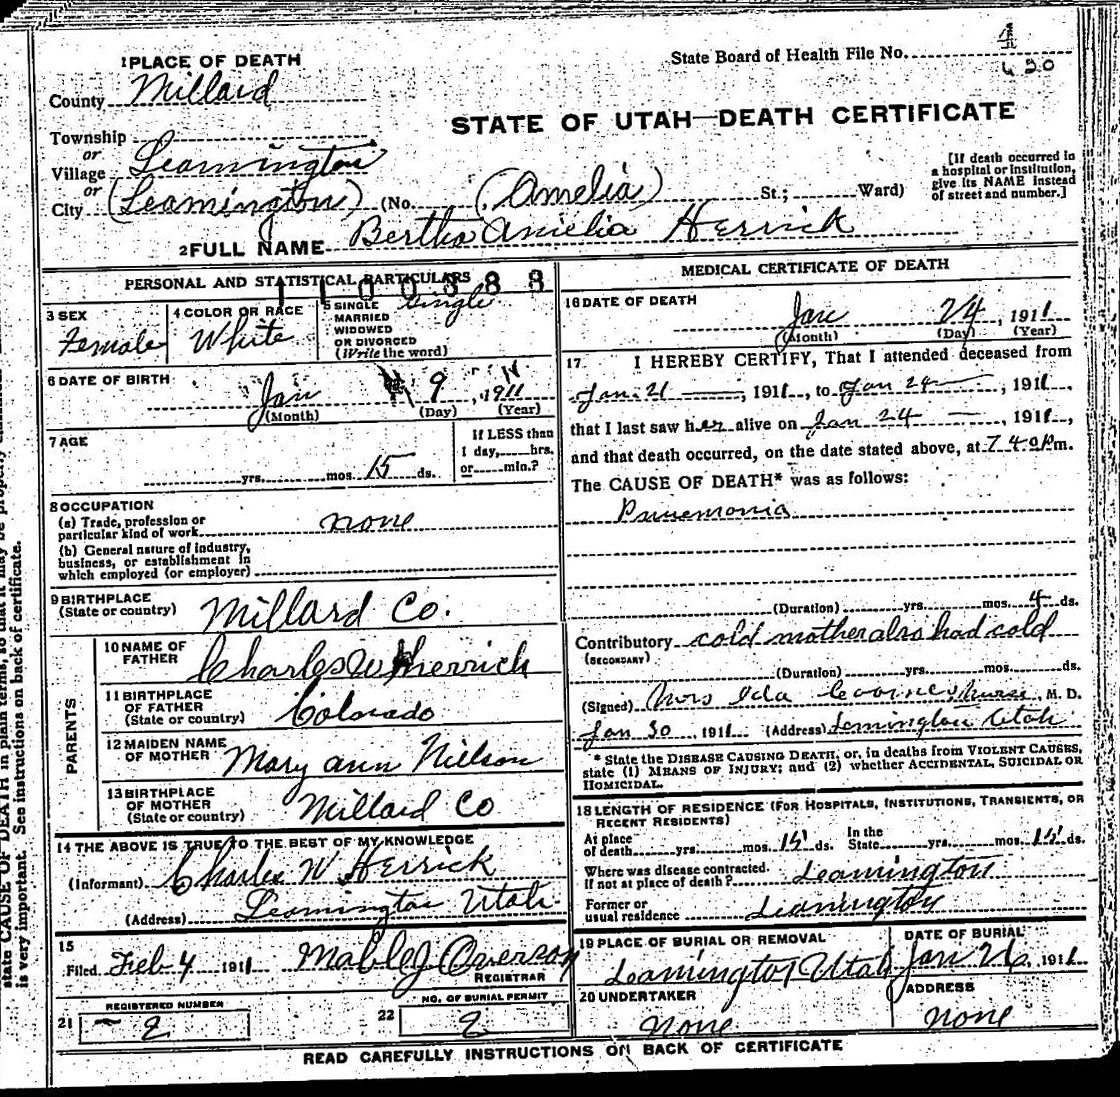 1 PLACE OF DEATH
State Board of Health File No. 4
County Millard
STATE OF UTAH—DEATH CERTIFICATE
Township
or
Village Leamington
or
City (Leamington) (No. (Amelia) St.; Ward)
[If death occurred in
a hospital or institution,
give its NAME instead
of street and number.]
2 FULL NAME Bertha Amelia Herrick
PERSONAL AND STATISTICAL PARTICULARS
3 SEX
Female
4 COLOR OR RACE
White
5 SINGLE
MARRIED
WIDOWED
OR DIVORCED
(Write the word)
Single
6 DATE OF BIRTH
Jan 9, 1911
(Month) (Day) (Year)
7 AGE
yrs. mos. 15 ds.
If LESS than
1 day, hrs.
or min.?
8 OCCUPATION
(a) Trade, profession or
particular kind of work none
(b) General nature of industry,
business, or establishment in
which employed (or employer)
9 BIRTHPLACE
(State or country) Millard Co.
PARENTS
10 NAME OF
FATHER Charles W Herrick
11 BIRTHPLACE
OF FATHER
(State or country) Colorado
12 MAIDEN NAME
OF MOTHER Mary ann Nielson
13 BIRTHPLACE
OF MOTHER
(State or country) Millard Co
14 THE ABOVE IS TRUE TO THE BEST OF MY KNOWLEDGE
(Informant) Charles W Herrick
(Address) Leamington Utah
15
Filed Feb 4 1911 Mable J Overson
REGISTRAR
REGISTERED NUMBER
21 2
NO. OF BURIAL PERMIT
22 2
MEDICAL CERTIFICATE OF DEATH
16 DATE OF DEATH
Jan 24, 1911
(Month) (Day) (Year)
17 I HEREBY CERTIFY, That I attended deceased from
Jan. 21, 1911, to Jan 24, 1911,
that I last saw her alive on Jan 24, 1911,
and that death occurred, on the date stated above, at 7 40 P m.
The CAUSE OF DEATH* was as follows:
Pnuemonia
(Duration) yrs. mos. 4 ds.
Contributory cold mother also had cold
(SECONDARY)
(Duration) yrs. mos. ds.
(Signed) Mrs Ida nurse, M. D.
Jan 30, 1911 (Address) Lemington Utah
* State the DISEASE CAUSING DEATH, or, in deaths from VIOLENT CAUSES,
state (1) MEANS OF INJURY; and (2) whether ACCIDENTAL, SUICIDAL OR
HOMICIDAL.
18 LENGTH OF RESIDENCE (FOR HOSPITALS, INSTITUTIONS, TRANSIENTS, OR
RECENT RESIDENTS)
At place
of death yrs. mos. 15 ds.
In the
State yrs. mos. 15 ds.
Where was disease contracted.
If not at place of death? Leamington
Former or
usual residence Leamington
19 PLACE OF BURIAL OR REMOVAL
Leamington Utah
DATE OF BURIAL
Jan 26, 1911
20 UNDERTAKER
none
ADDRESS
none
READ CAREFULLY INSTRUCTIONS ON BACK OF CERTIFICATE
state CAUSE OF DEATH in plain terms, so that it may be properly
is very important. See instructions on back of certificate.